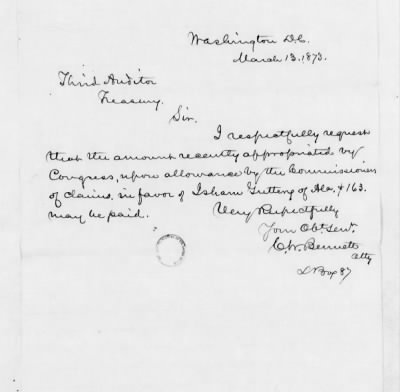 Washington D.C.
March 13. 1873.
Third Auditor
Treasury.
Sir.
I respectfully request
that the amount recently appropriated by
Congress, upon allowance by the Commissioners
of claims, in favor of Isham of Ala. $163.
may be paid.
Very Respectfully
Your Obt. Servt.
C.W. Bennett
Atty
L Box 87